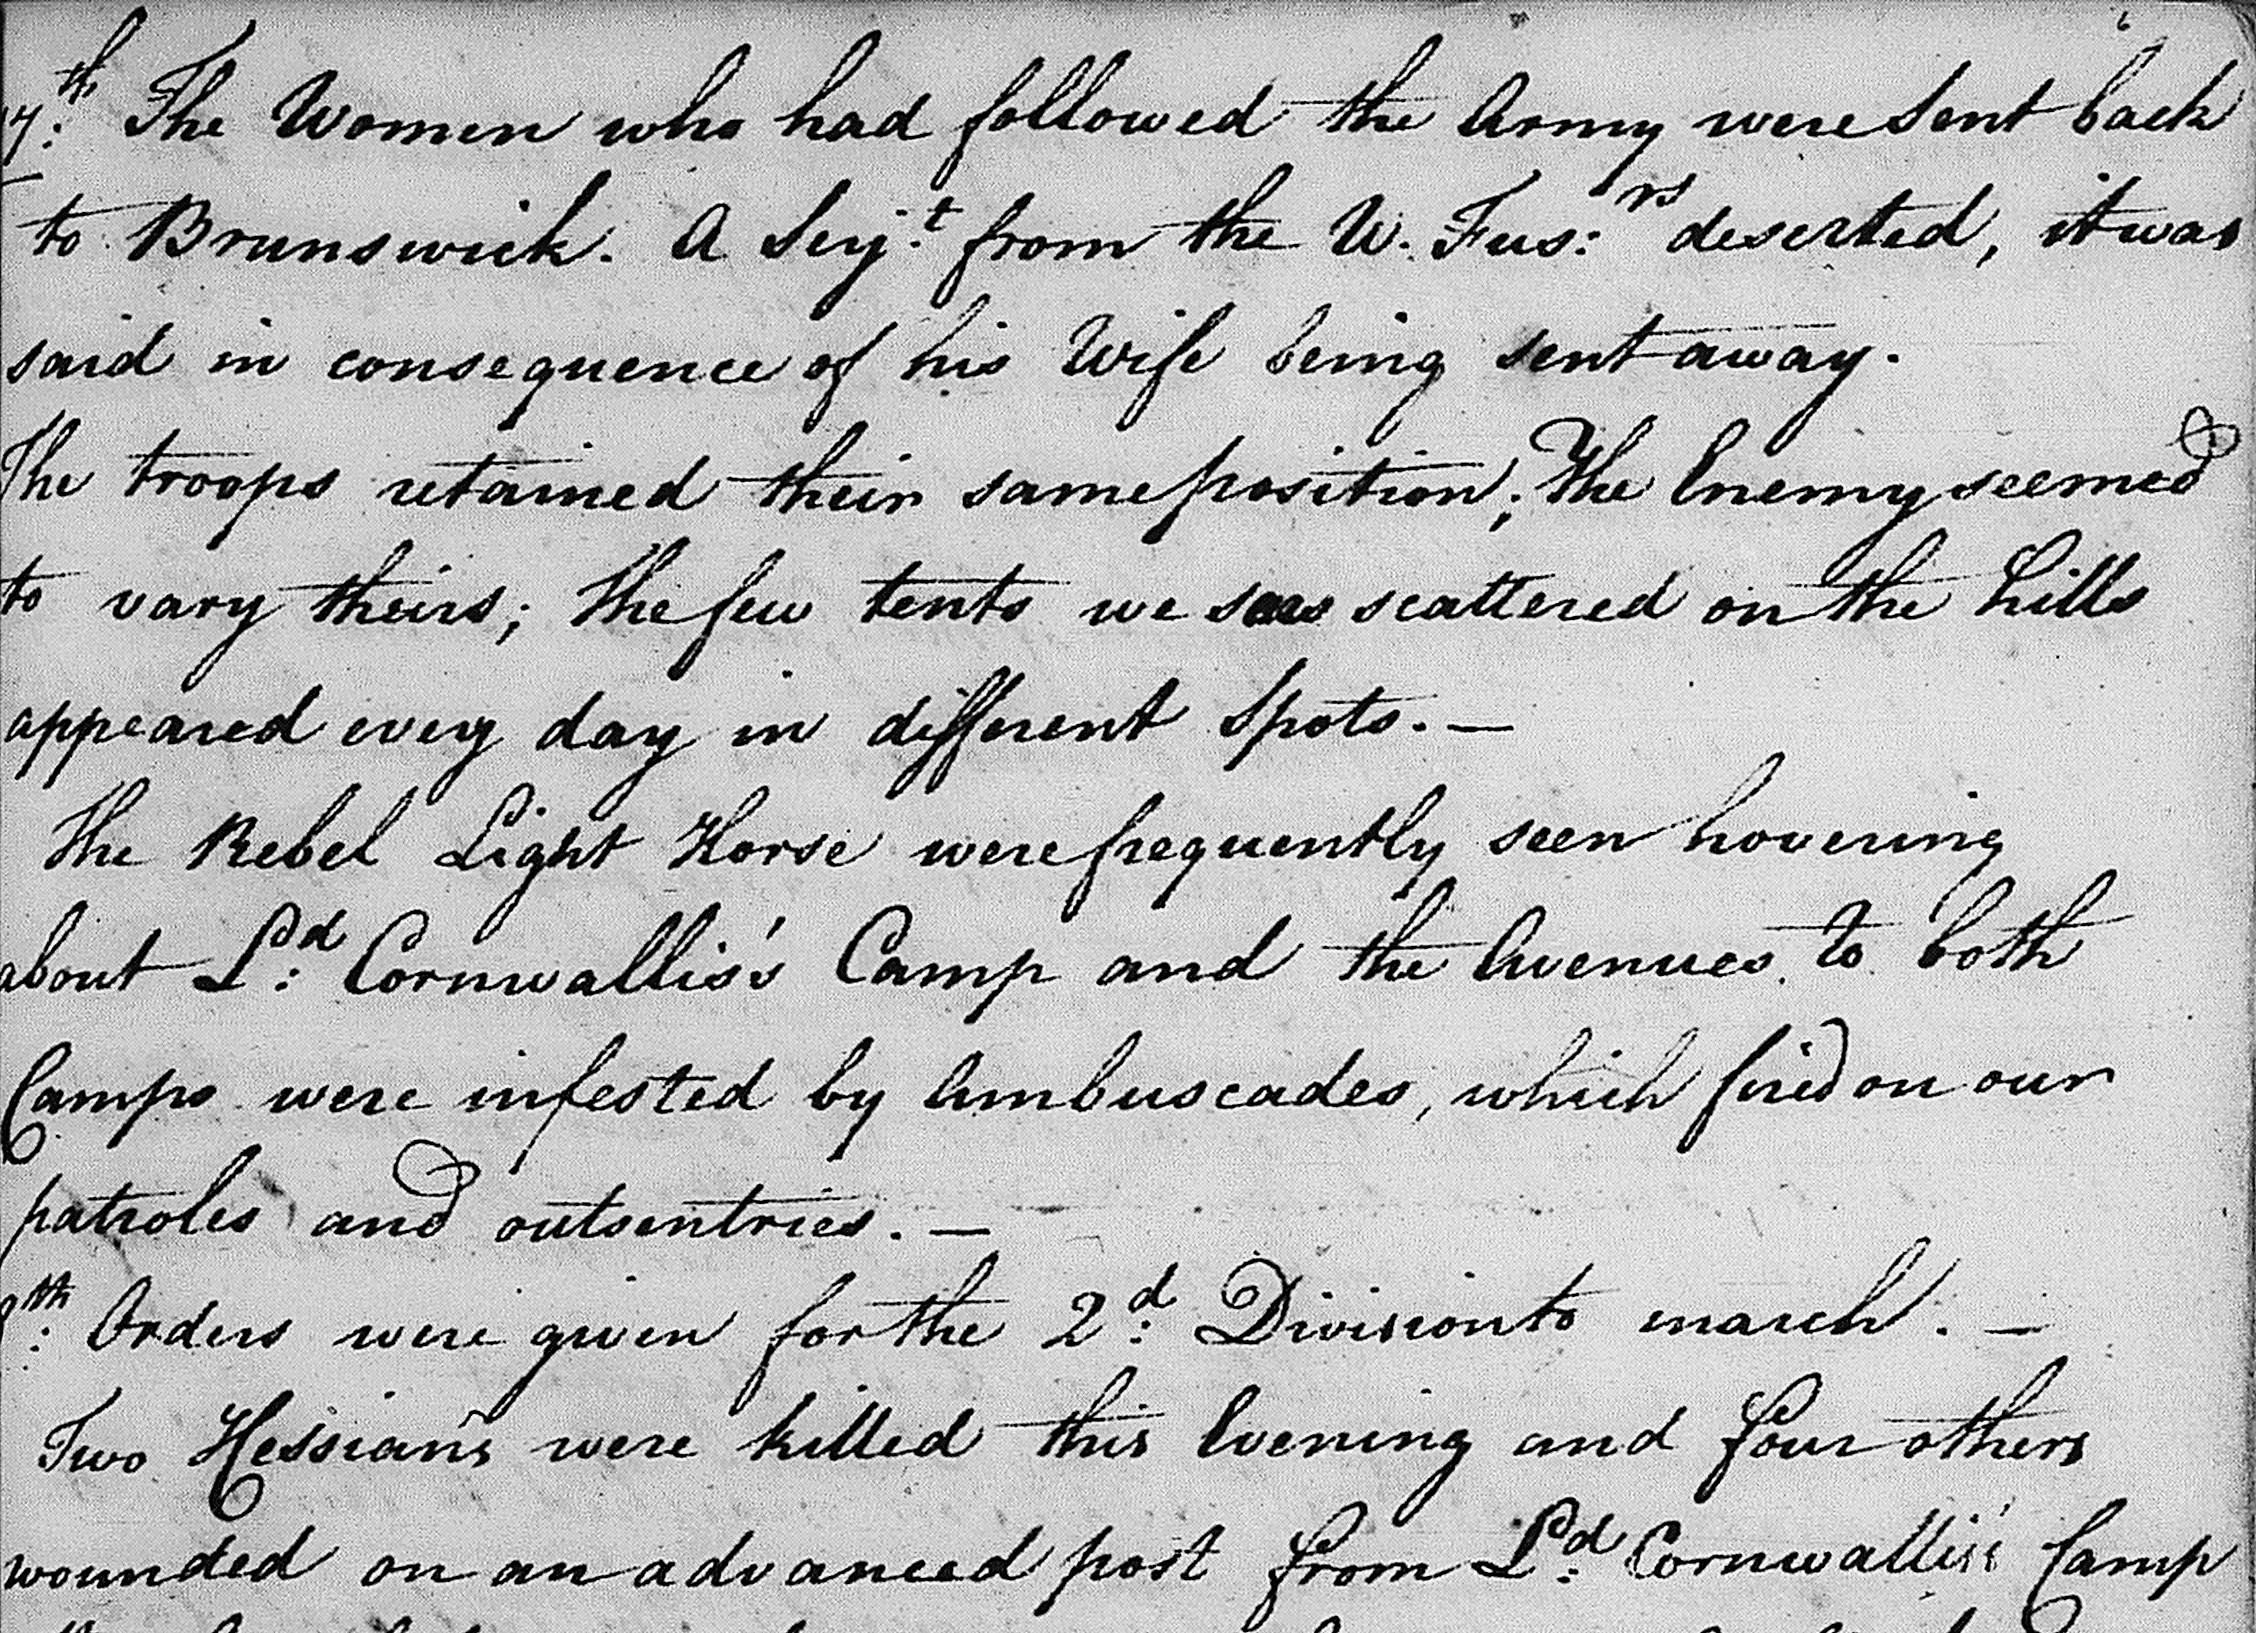 17.th The Women who had followed the Army were Sent back
to Brunswick. A Serj.t from the W. Fus:rs deserted, it was
said in consequence of his Wife being sent away.
The troops retained their same position; The Enemy seemed
to vary theirs; The few tents we saw scattered on the hills
appeared every day in different Spots. —
The Rebel Light Horse were frequently seen hovering
about L:d Cornwallis's Camp and the Avenues to both
Camps were infested by Ambuscades, which fired on our
patroles and outsentries. —
8:th Orders were given for the 2:d Division to march. —
Two Hessians were killed this Evening and four others
wounded on an advanced post from L:d Cornwallis' Camp